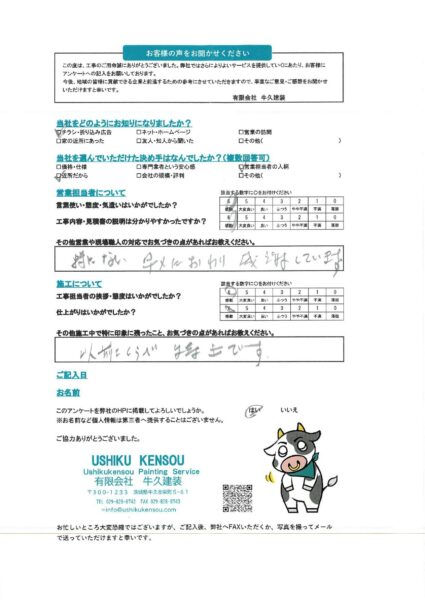 お客様の声をお聞かせください
この度は、工事のご用命誠にありがとうございました。弊社ではさらによりよいサービスを提供していくにあたり、お客様に
アンケートへの記入をお願いしております。
今後、地域の皆様に貢献できる企業と前進するための参考にさせていただきますので、率直なご意見・ご感想をお聞かせ
いただけますと幸いです。
有限会社 牛久建装
当社をどのようにお知りになりましたか?
□チラシ・折り込み広告 □ネット・ホームページ □営業の訪問
□家の近所にあった □友人・知人から聞いた □その他( )
当社を選んでいただけた決め手はなんでしたか?(複数回答可)
□価格・仕様 □専門業者という安心感 □営業担当者の人柄
□近所だから □会社の規模・評判 □その他( )
営業担当者について 該当する数字に○をお付けください
言葉使い・態度・気遣いはいかがでしたか?
6 5 4 3 2 1 0
感動 大変良い 良い ふつう やや不満 不満 落胆
工事内容・見積書の説明は分かりやすかったですか?
6 5 4 3 2 1 0
感動 大変良い 良い ふつう やや不満 不満 落胆
その他営業や現場職人の対応でお気づきの点があればお教えください。
特にない 感謝しています
施工について 該当する数字に○をお付けください
工事担当者の挨拶・態度はいかがでしたか?
6 5 4 3 2 1 0
感動 大変良い 良い ふつう やや不満 不満 落胆
仕上がりはいかがでしたか?
6 5 4 3 2 1 0
感動 大変良い 良い ふつう やや不満 不満 落胆
その他施工中で特に印象に残ったこと、お気づきの点があればお教えください。
以前にくらべ です
ご記入日
お名前
このアンケートを弊社のHPに掲載してよろしいでしょうか。 はい いいえ
※お名前など個人情報は第三者へ提供することはございません。
ご協力ありがとうございました。
USHIKU KENSOU
Ushikukensou Painting Service
有限会社 牛久建装
〒300-1233 茨城県牛久市栄町5-61
TEL 029-828-8742 FAX 029-828-8743
info@ushikukensou.com
お忙しいところ大変恐縮ではございますが、ご記入後、弊社へFAXいただくか、写真を撮ってメール
で送っていただけますと幸いです。